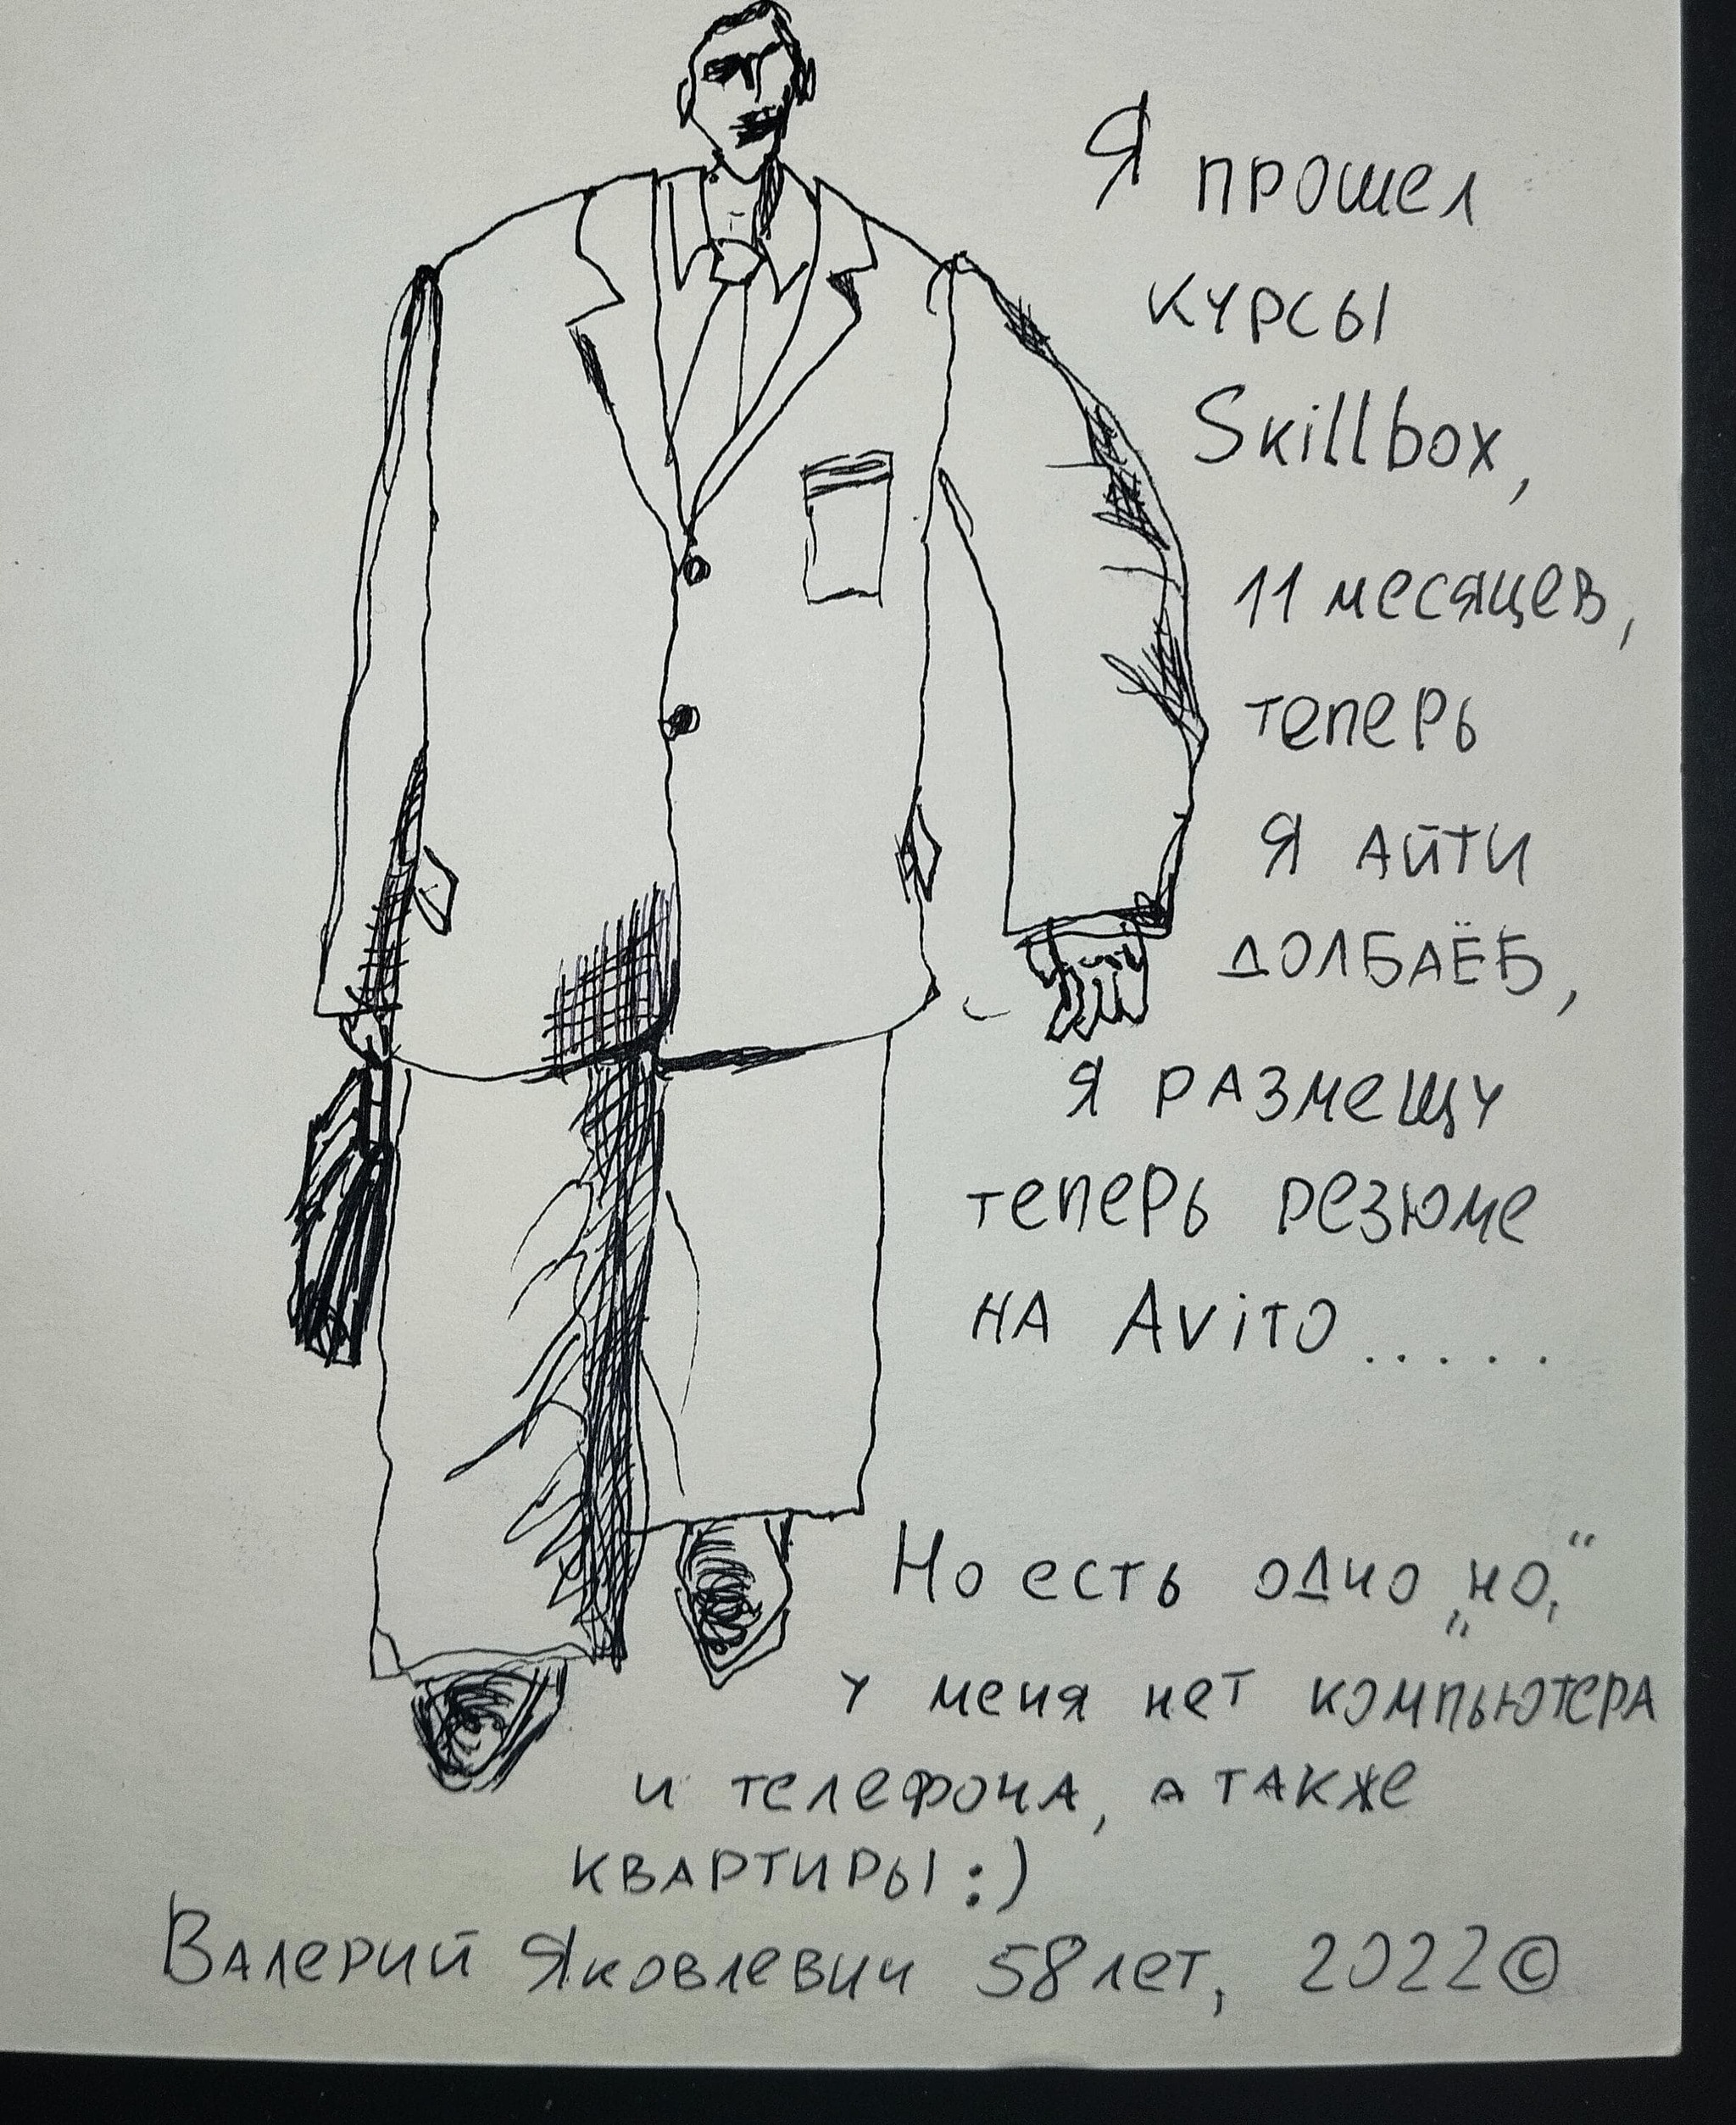 Я прошел
курсы
Skillbox,
11 месяцев,
теперь
я айти
долбаёб,
я размещу
теперь резюме
на Avito.....
Но есть одно „но,“
у меня нет компьютера
и телефона, а также
квартиры :)
Валерий Яковлевич 58 лет, 2022©